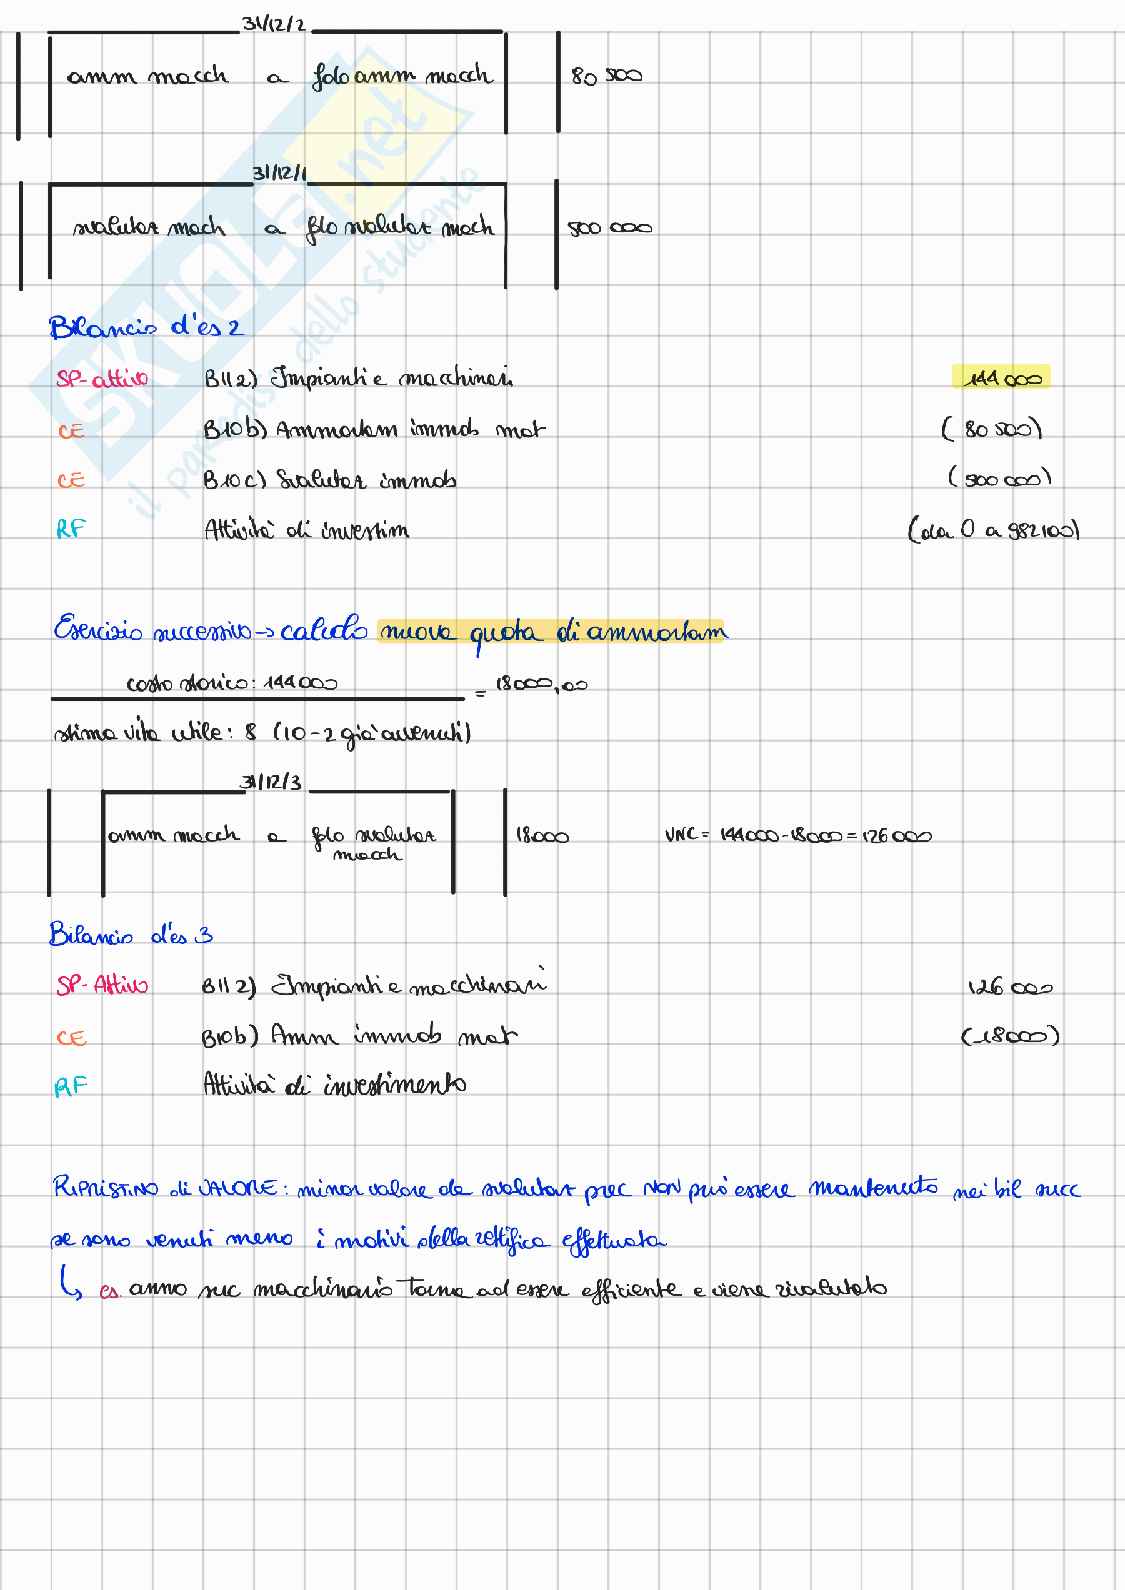 31/12/2
amm macch a fdo amm macch 80 500
31/12/1
svalutaz macch a fdo svalutaz macch 500 000
Bilancio d'es 2
SP-attivo BII2) Impianti e macchinari 144 000
CE B10b) Ammortam immob mat (80 500)
CE B10c) Svalutaz immob (500 000)
RF Attività di investim (da 0 a 982100)
Esercizio successivo → calcolo nuova quota di ammortam
costo storico: 144 000 = 18000,00
stima vita utile: 8 (10-2 già avvenuti)
31/12/3
amm macch a fdo svalutaz 18000 VNC = 144 000 - 18000 = 126 000
macch
Bilancio d'es 3
SP-Attivo BII2) Impianti e macchinari 126 000
CE B10b) Amm immob mat (18000)
RF Attività di investimento
RIPRISTINO di VALORE: minor valore da svalutaz prec NON può essere mantenuto nei bil succ
se sono venuti meno i motivi della rettifica effettuata
↳ es. anno suc macchinario torna ad essere efficiente e viene rivalutato
SKUOLA.net
il paradiso dello studente